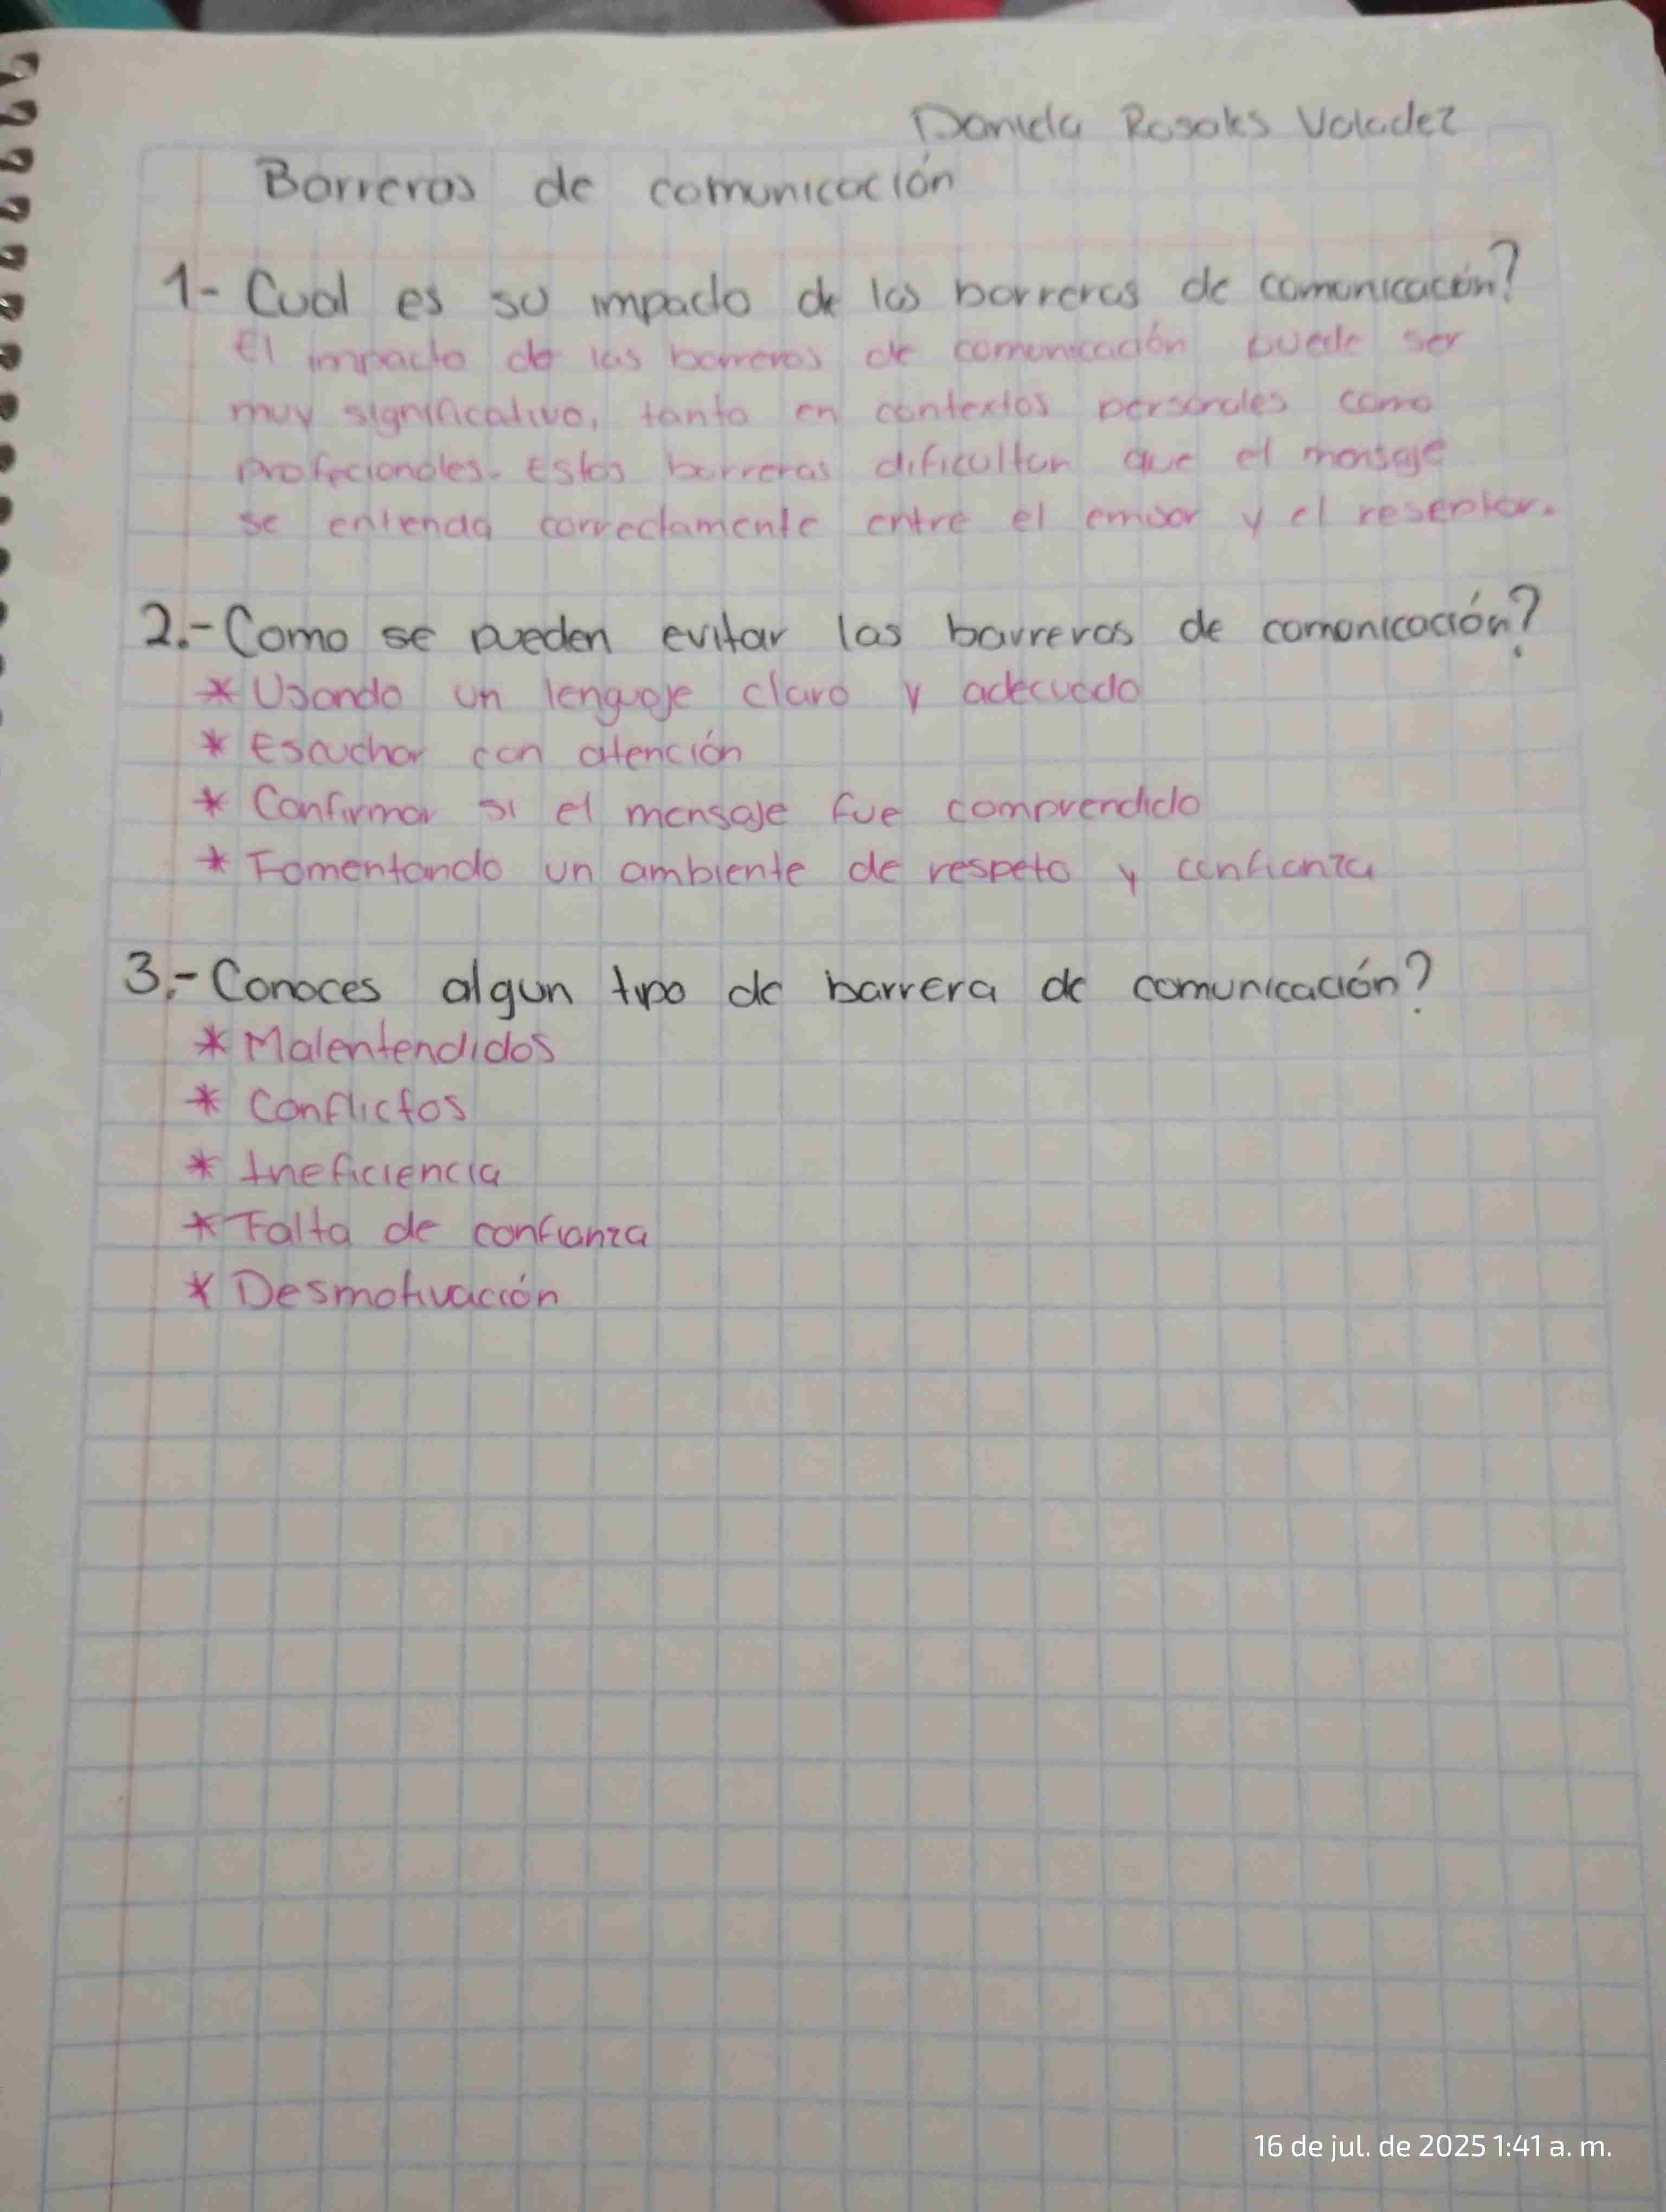 Daniela Rosales Valadez
Barreras de comunicación
1- Cual es su impacto de las barreras de comunicación?
El impacto de las barreras de comunicación puede ser
muy significativo, tanto en contextos personales como
profecionales. Estas barreras dificultan que el mensaje
se entienda correctamente entre el emisor y el reseptor.
2.- Como se pueden evitar las barreras de comunicación?
* Usando un lenguaje claro y adecuado
* Escuchar con atención
* Confirmar si el mensaje fue comprendido
* Fomentando un ambiente de respeto y confianza
3.- Conoces algun tipo de barrera de comunicación?
* Malentendidos
* Conflictos
* Ineficiencia
* Falta de confianza
* Desmotivación
16 de jul. de 2025 1:41 a. m.